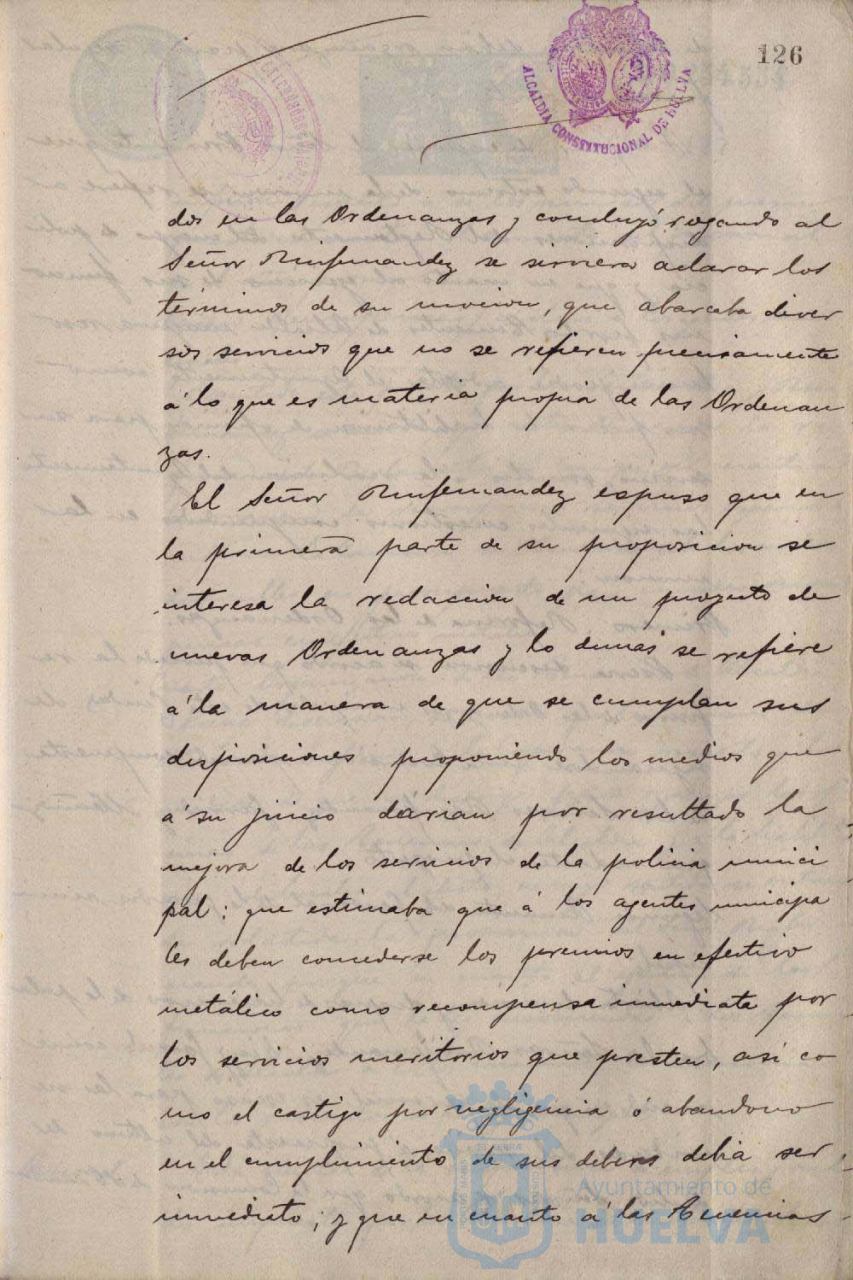 126
ALCALDIA CONSTITUCIONAL DE HUELVA
dos en las Ordenanzas y concluyó rogando al
Señor Ruifernandez se sirviera aclarar los
términos de su mocion, que abarcaba diver
sos servicios que no se refieren precisamente
á lo que es materia propia de las Ordenan
zas.
El Señor Ruifernandez espuso que en
la primera parte de su proposicion se
interesa la redaccion de un proyecto de
nuevas Ordenanzas y lo demás se refiere
á la manera de que se cumplan sus
disposiciones proponiendo los medios que
á su juicio darian por resultado la
mejora de los servicios de la policia munici
pal: que estimaba que á los agentes municipa
les deben concederse los premios en efectivo
metálico como recompensa inmediata por
los servicios meritorios que presten, así co
mo el castigo por negligencia ó abandono
en el cumplimiento de sus deberes debia ser
inmediato; y que en cuanto á las Tenencias
Ayuntamiento de
HUELVA